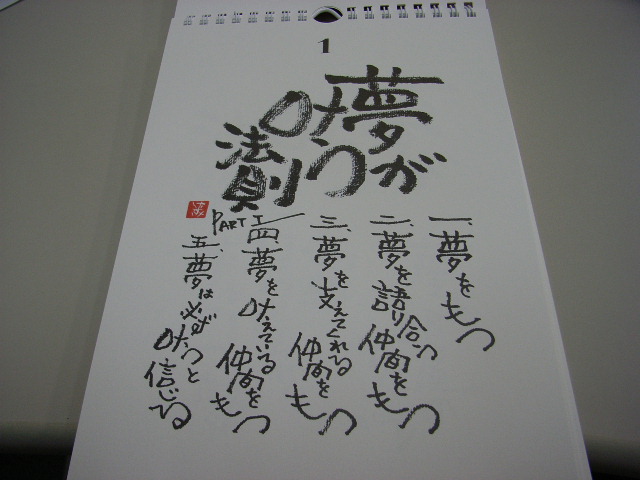 1
夢が
叶う
法則
PART I
一、夢をもつ
二、夢を語り合う
仲間をもつ
三、夢を支えてくれる
仲間をもつ
四、夢を叶えている
仲間をもつ
五、夢は必ず
叶うと
信じる